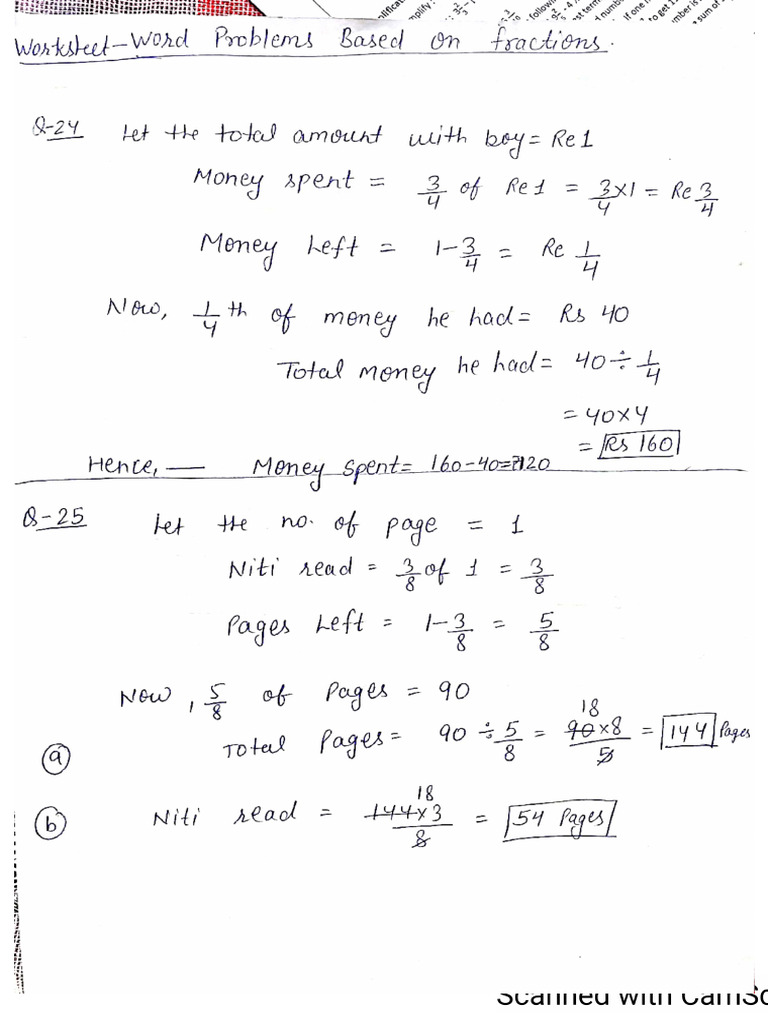 Worksheet-Word Problems Based on fractions.
Q-24 Let the total amount with boy = Re 1
Money spent = 3/4 of Re 1 = 3/4 × 1 = Re 3/4
Money Left = 1 - 3/4 = Re 1/4
Now, 1/4 th of money he had = Rs 40
Total money he had = 40 ÷ 1/4
= 40 × 4
= Rs 160
Hence, — Money spent = 160 - 40 = ₹120
Q-25 Let the no. of page = 1
Niti read = 3/8 of 1 = 3/8
Pages Left = 1 - 3/8 = 5/8
Now, 5/8 of Pages = 90
18
(a) Total Pages = 90 ÷ 5/8 = 90×8/5 = 144 Pages
18
(b) Niti read = 144×3/8 = 54 Pages
Scanned with CamSc